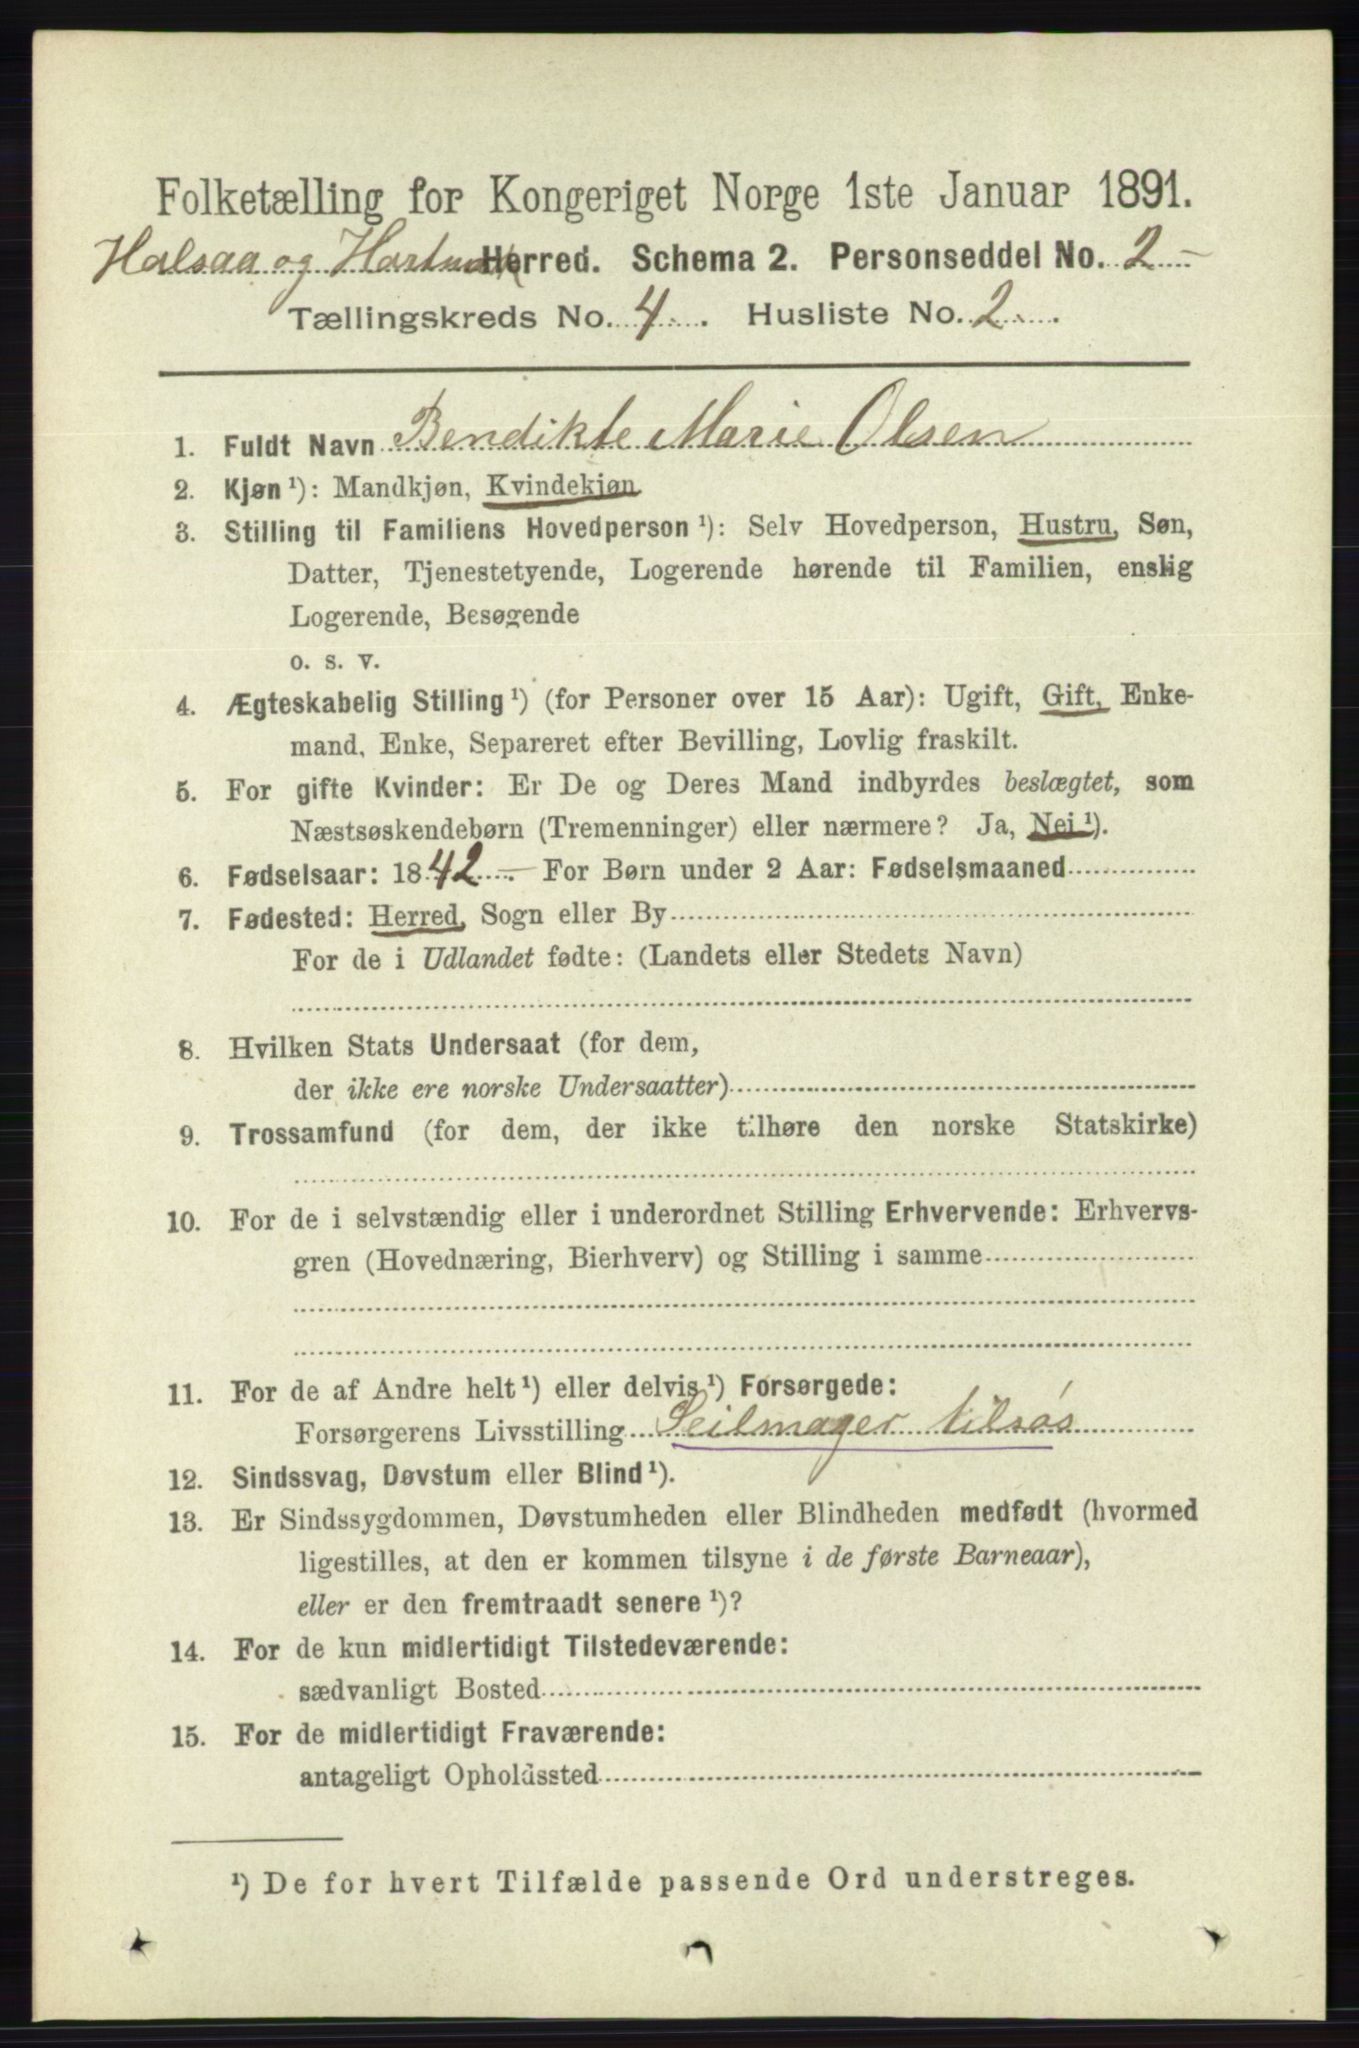 Folketælling for Kongeriget Norge 1ste Januar 1891.
Halsaa og Hartmark Herred. Schema 2. Personseddel No. 2
Tællingskreds No. 4. Husliste No. 2.
1. Fuldt Navn Bendikte Marie Olsen
2. Kjøn ¹): Mandkjøn, Kvindekjøn
3. Stilling til Familiens Hovedperson ¹): Selv Hovedperson, Hustru, Søn,
Datter, Tjenestetyende, Logerende hørende til Familien, enslig
Logerende, Besøgende
o. s. v.
4. Ægteskabelig Stilling ¹) (for Personer over 15 Aar): Ugift, Gift, Enke-
mand, Enke, Separeret efter Bevilling, Lovlig fraskilt.
5. For gifte Kvinder: Er De og Deres Mand indbyrdes beslægtet, som
Næstsøskendebørn (Tremenninger) eller nærmere? Ja, Nei ¹).
6. Fødselsaar: 1842. For Børn under 2 Aar: Fødselsmaaned
7. Fødested: Herred, Sogn eller By
For de i Udlandet fødte: (Landets eller Stedets Navn)
8. Hvilken Stats Undersaat (for dem,
der ikke ere norske Undersaatter)
9. Trossamfund (for dem, der ikke tilhøre den norske Statskirke)
10. For de i selvstændig eller i underordnet Stilling Erhvervende: Erhvervs-
gren (Hovednæring, Bierhverv) og Stilling i samme
11. For de af Andre helt ¹) eller delvis ¹) Forsørgede:
Forsørgerens Livsstilling Seilmager tilsøs
12. Sindssvag, Døvstum eller Blind ¹).
13. Er Sindssygdommen, Døvstumheden eller Blindheden medfødt (hvormed
ligestilles, at den er kommen tilsyne i de første Barneaar),
eller er den fremtraadt senere ¹)?
14. For de kun midlertidigt Tilstedeværende:
sædvanligt Bosted
15. For de midlertidigt Fraværende:
antageligt Opholdssted
¹) De for hvert Tilfælde passende Ord understreges.